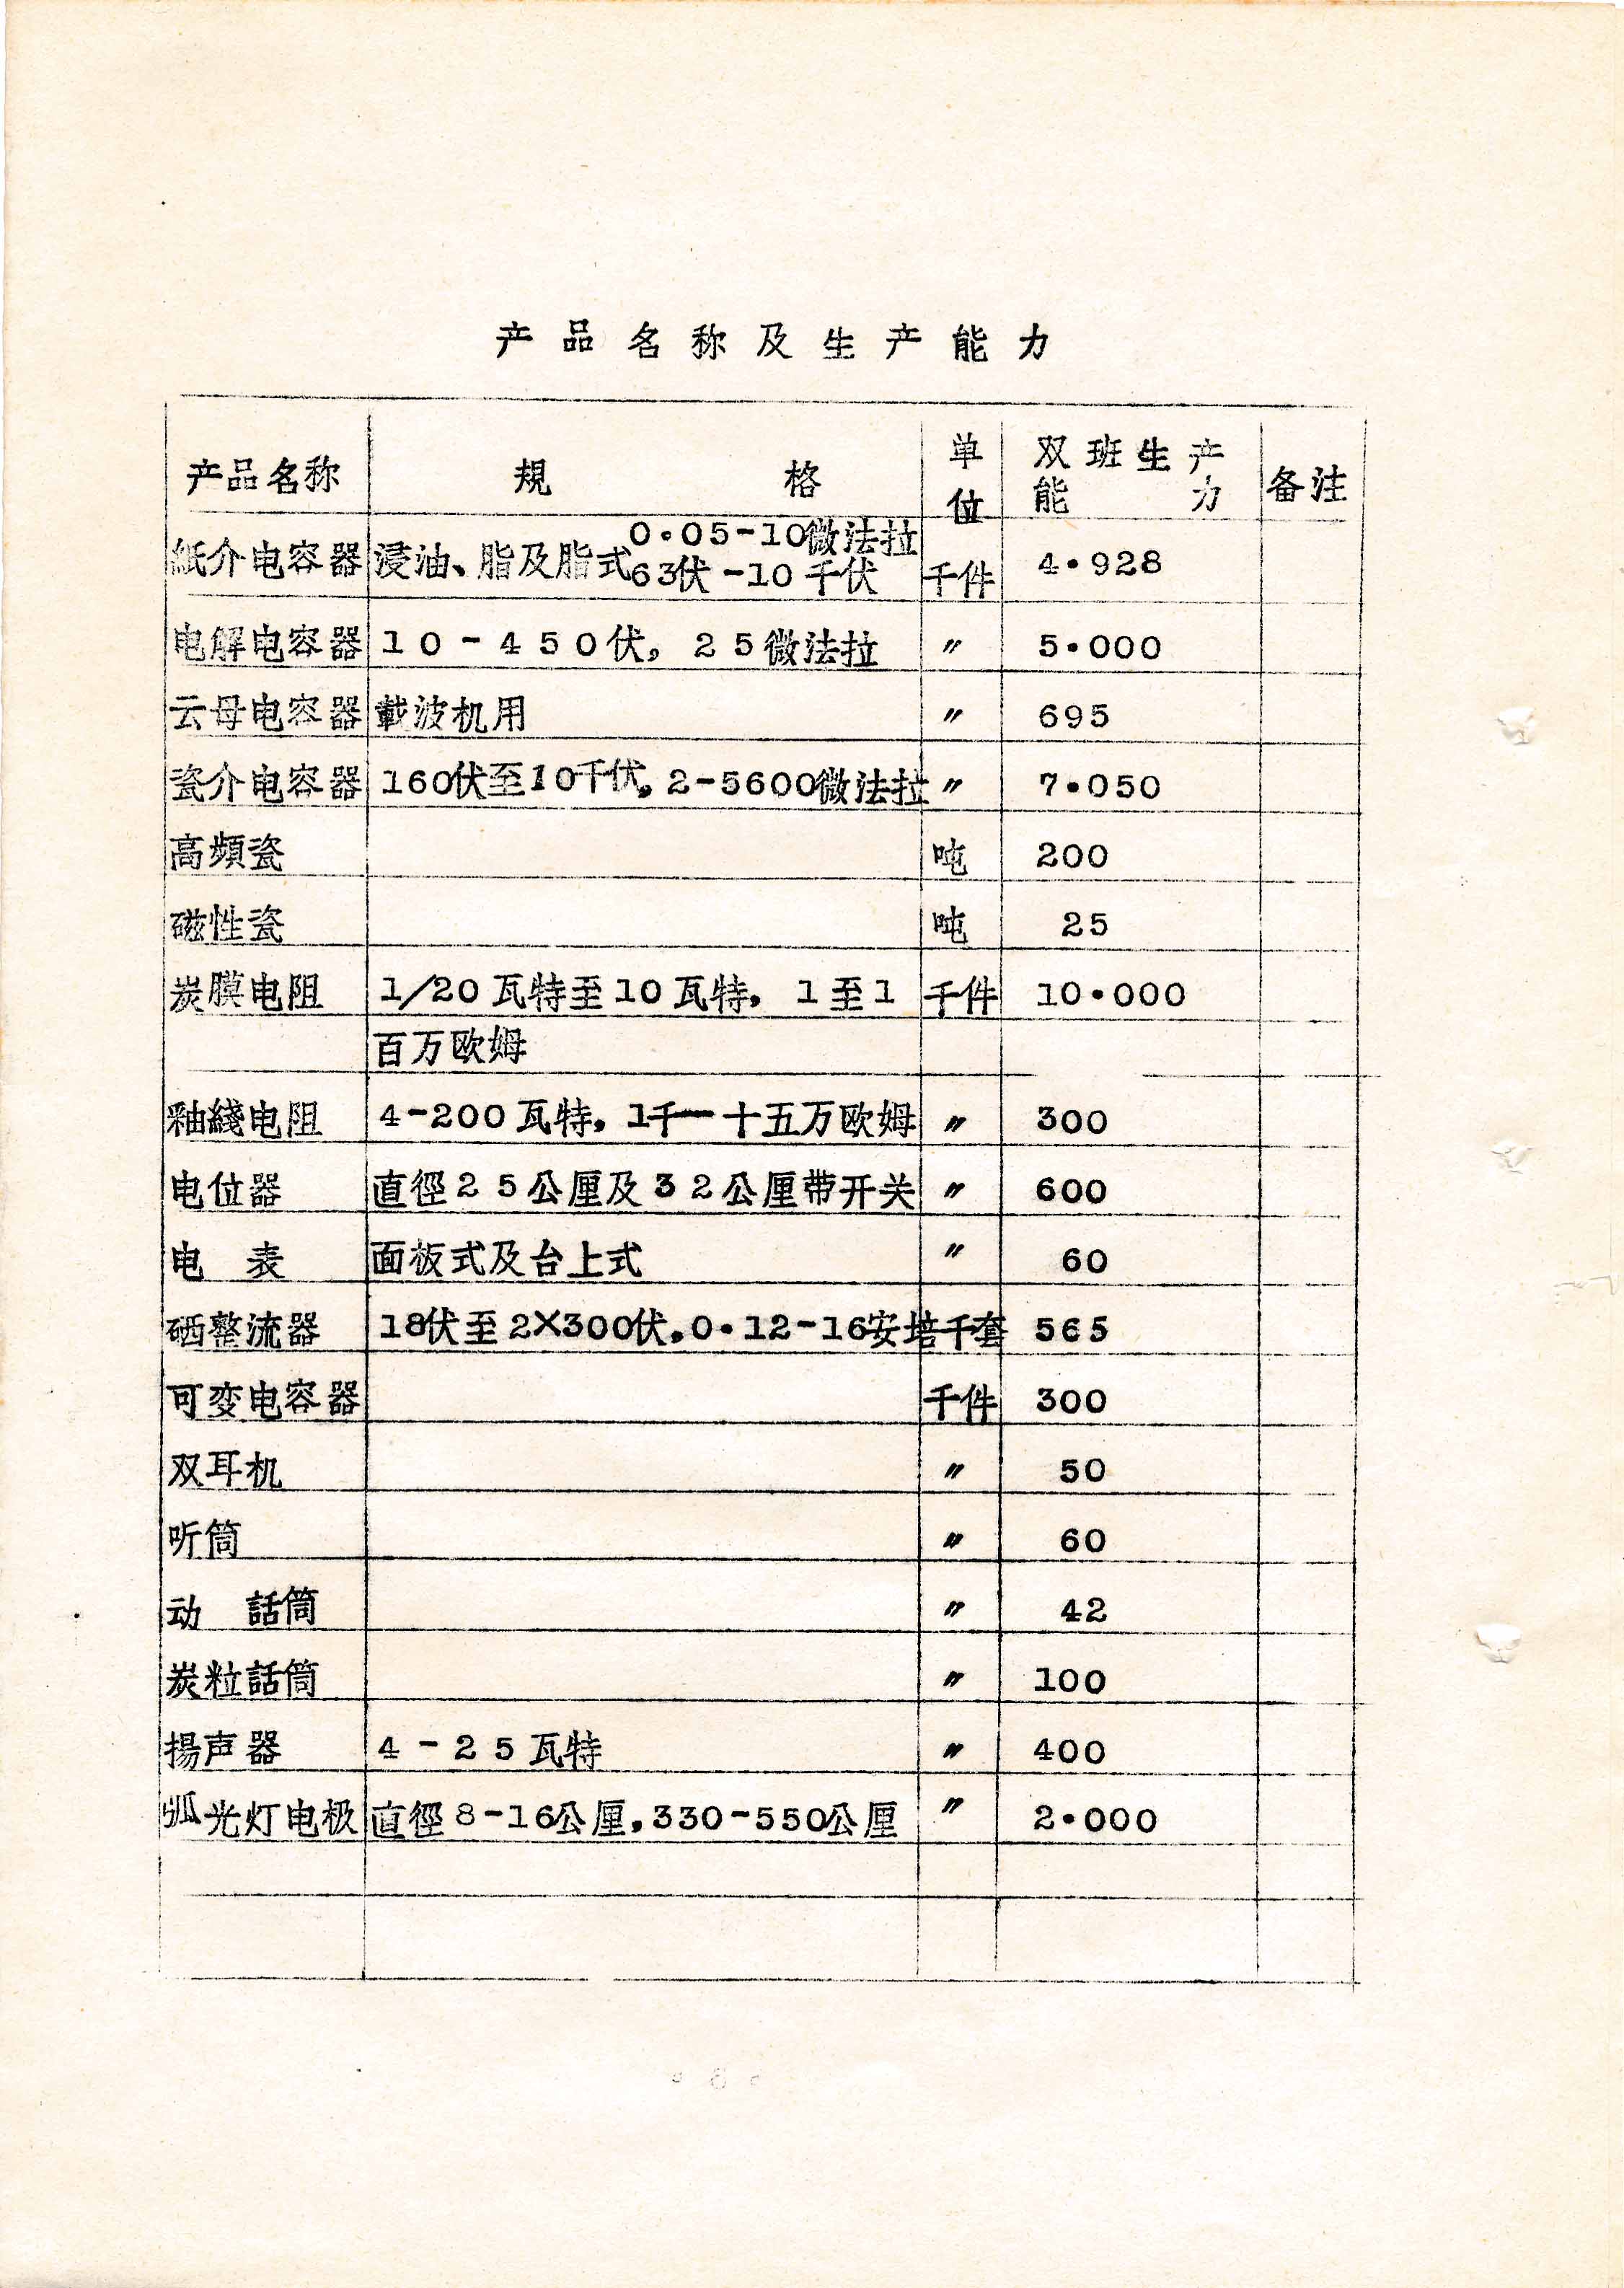 产品名称及生产能力
产品名称 規格 单位 双班生产能力 备注
紙介电容器 浸油、脂及脂式 0.05-10微法拉 63伏-10千伏 千件 4.928
电解电容器 10-450伏，25微法拉 〃 5.000
云母电容器 載波机用 〃 695
瓷介电容器 160伏至10千伏，2-5600微法拉 〃 7.050
高頻瓷 吨 200
磁性瓷 吨 25
炭膜电阻 1/20瓦特至10瓦特，1至1 千件 10.000
百万欧姆
釉綫电阻 4-200瓦特，1千一十五万欧姆 〃 300
电位器 直徑25公厘及32公厘带开关 〃 600
电 表 面板式及台上式 〃 60
硒整流器 18伏至2×300伏，0.12-16安培 千套 565
可变电容器 千件 300
双耳机 〃 50
听筒 〃 60
动 話筒 〃 42
炭粒話筒 〃 100
揚声器 4-25瓦特 〃 400
弧光灯电极 直徑8-16公厘，330-550公厘 〃 2.000